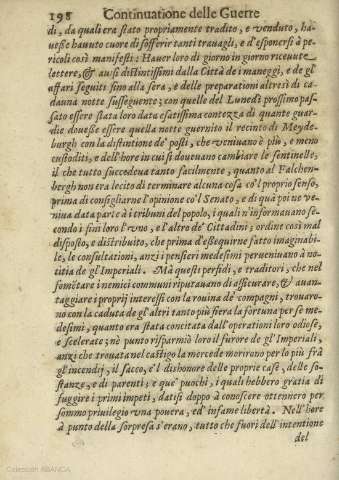 198 Continuatione delle Guerre
di, da quali era stato propriamente tradito, e venduto, ha-
uesse hauuto cuore di sofferir tanti trauagli, e d'esponersi à pe-
ricoli così manifesti: Hauer loro di giorno in giorno riceuute
lettere, & auisi distintissimi dalla Città de i maneggi, e de gl'
affari seguiti fino alla sera, e delle preparationi altresì di ca-
dauna notte susseguente; con quelle del Lunedì prossimo pas-
sato essere stata loro data esatissima contezza di quante guar-
die douesse essere quella notte guernito il recinto di Meyde-
burgh con la distintione de' posti, che veniuano è più, e meno
custoditi, e dell'hore in cui si doueuano cambiare le sentinelle,
il che tutto succedeua tanto facilmente, quanto al Falchen-
bergh non era lecito di terminare alcuna cosa co'l proprio senso,
prima di consigliarne l'opinione co'l Senato, e di quà poi ne ve-
niua data parte à i tribuni del popolo, i quali n'informauano se-
condo i fini loro l'vno, e l'altro de' Cittadini; ordine così mal
disposto, e distribuito, che prima d'essequirne fatto imaginabi-
le, le consultationi, anzi i pensieri medesimi perueniuano à no-
titia de gl'Imperiali. Mà questi perfidi, e traditori, che nel
somettare i nemici communi riputauano di assicurare, & auan-
taggiare i proprij interessi con la rouina de' compagni, trouaro-
no con la caduta de gl'altri tanto più fiera la fortuna per se me-
desimi, quanto era stata concitata dall'operationi loro odiose,
e scelerate; nè punto risparmiò loro il furore de gl'Imperiali,
anzi chè trouata nel castigo la mercede morirono per lo più frà
gl'incendij, il sacco, e'l dishonore delle proprie case, delle so-
stanze, e di parenti; e que' puochi, i quali hebbero gratia di
fuggire i primi impeti, datisi doppo à conoscere ottennero per
sommo priuilegio vna pouera, ed' infame libertà. Nell'hore
à punto della sorpresa s'erano, tutto che fuori dell'intentione
del
Colección ABANCA